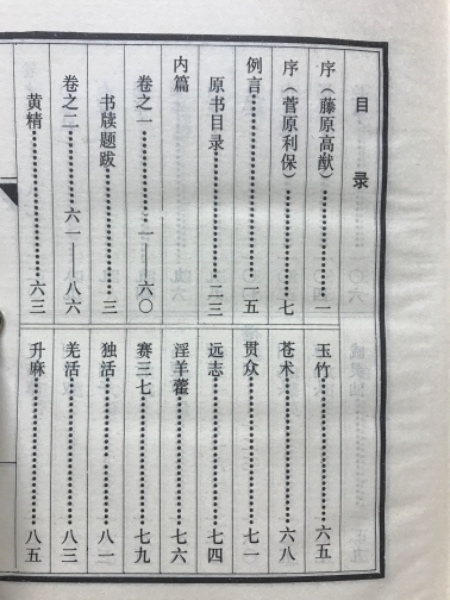 目录
序（藤原高猷）……一
序（菅原利保）……七
例言……一五
原书目录……二三
内篇
卷之一……一——六〇
书牍题跋……三
卷之二……六一——八六
黄精……六三
玉竹……六五
苍术……六八
贯众……七一
远志……七四
淫羊藿……七六
赛三七……七九
独活……八一
羌活……八三
升麻……八五